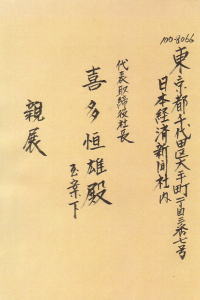 100-8066
東京都千代田区大手町一丁目三番七号
日本経済新聞社内
代表取締役社長
喜多恒雄殿
玉案下
親展